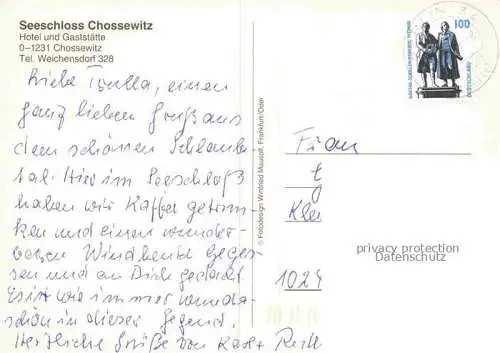 Seeschloss Chossewitz
Hotel und Gaststätte
0-1231 Chossewitz
Tel. Weichensdorf 328
einen
ganz lieben Gruß aus
dem schönen Schlaube
tal. Hier im Seeschloß
haben wir Kaffee getrun
ken und einen wunder-
baren Windbeutel geges
sen und an Dich gedacht
Es ist wie immer wunder
schön in dieser Gegend.
Herzliche Grüße von
© Fotodesign Winfried Mausolf, Frankfurt/Oder
100
DEUTSCHLAND
Frau
Klei
1024
privacy protection
Datenschutz